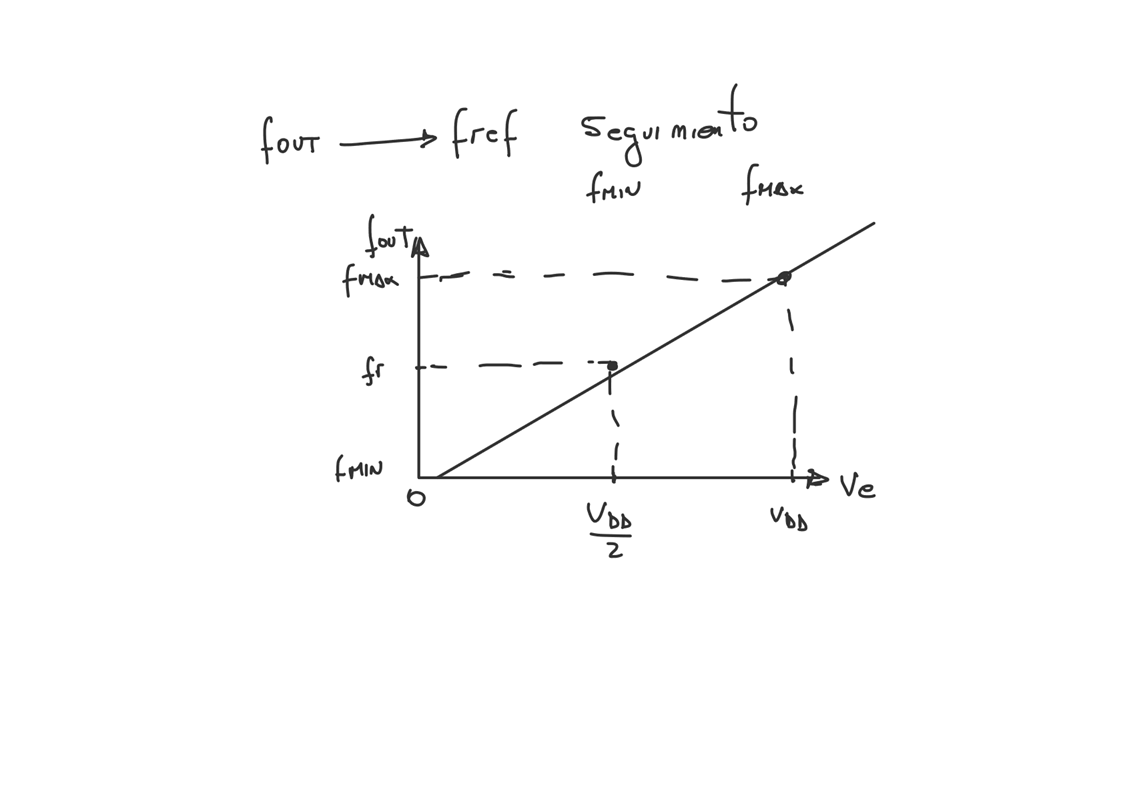 fOUT → fref Seguimiento
fMIN fMAX
fOUT
fMAX
fr
fMIN
0
Ve
VDD
2
VDD